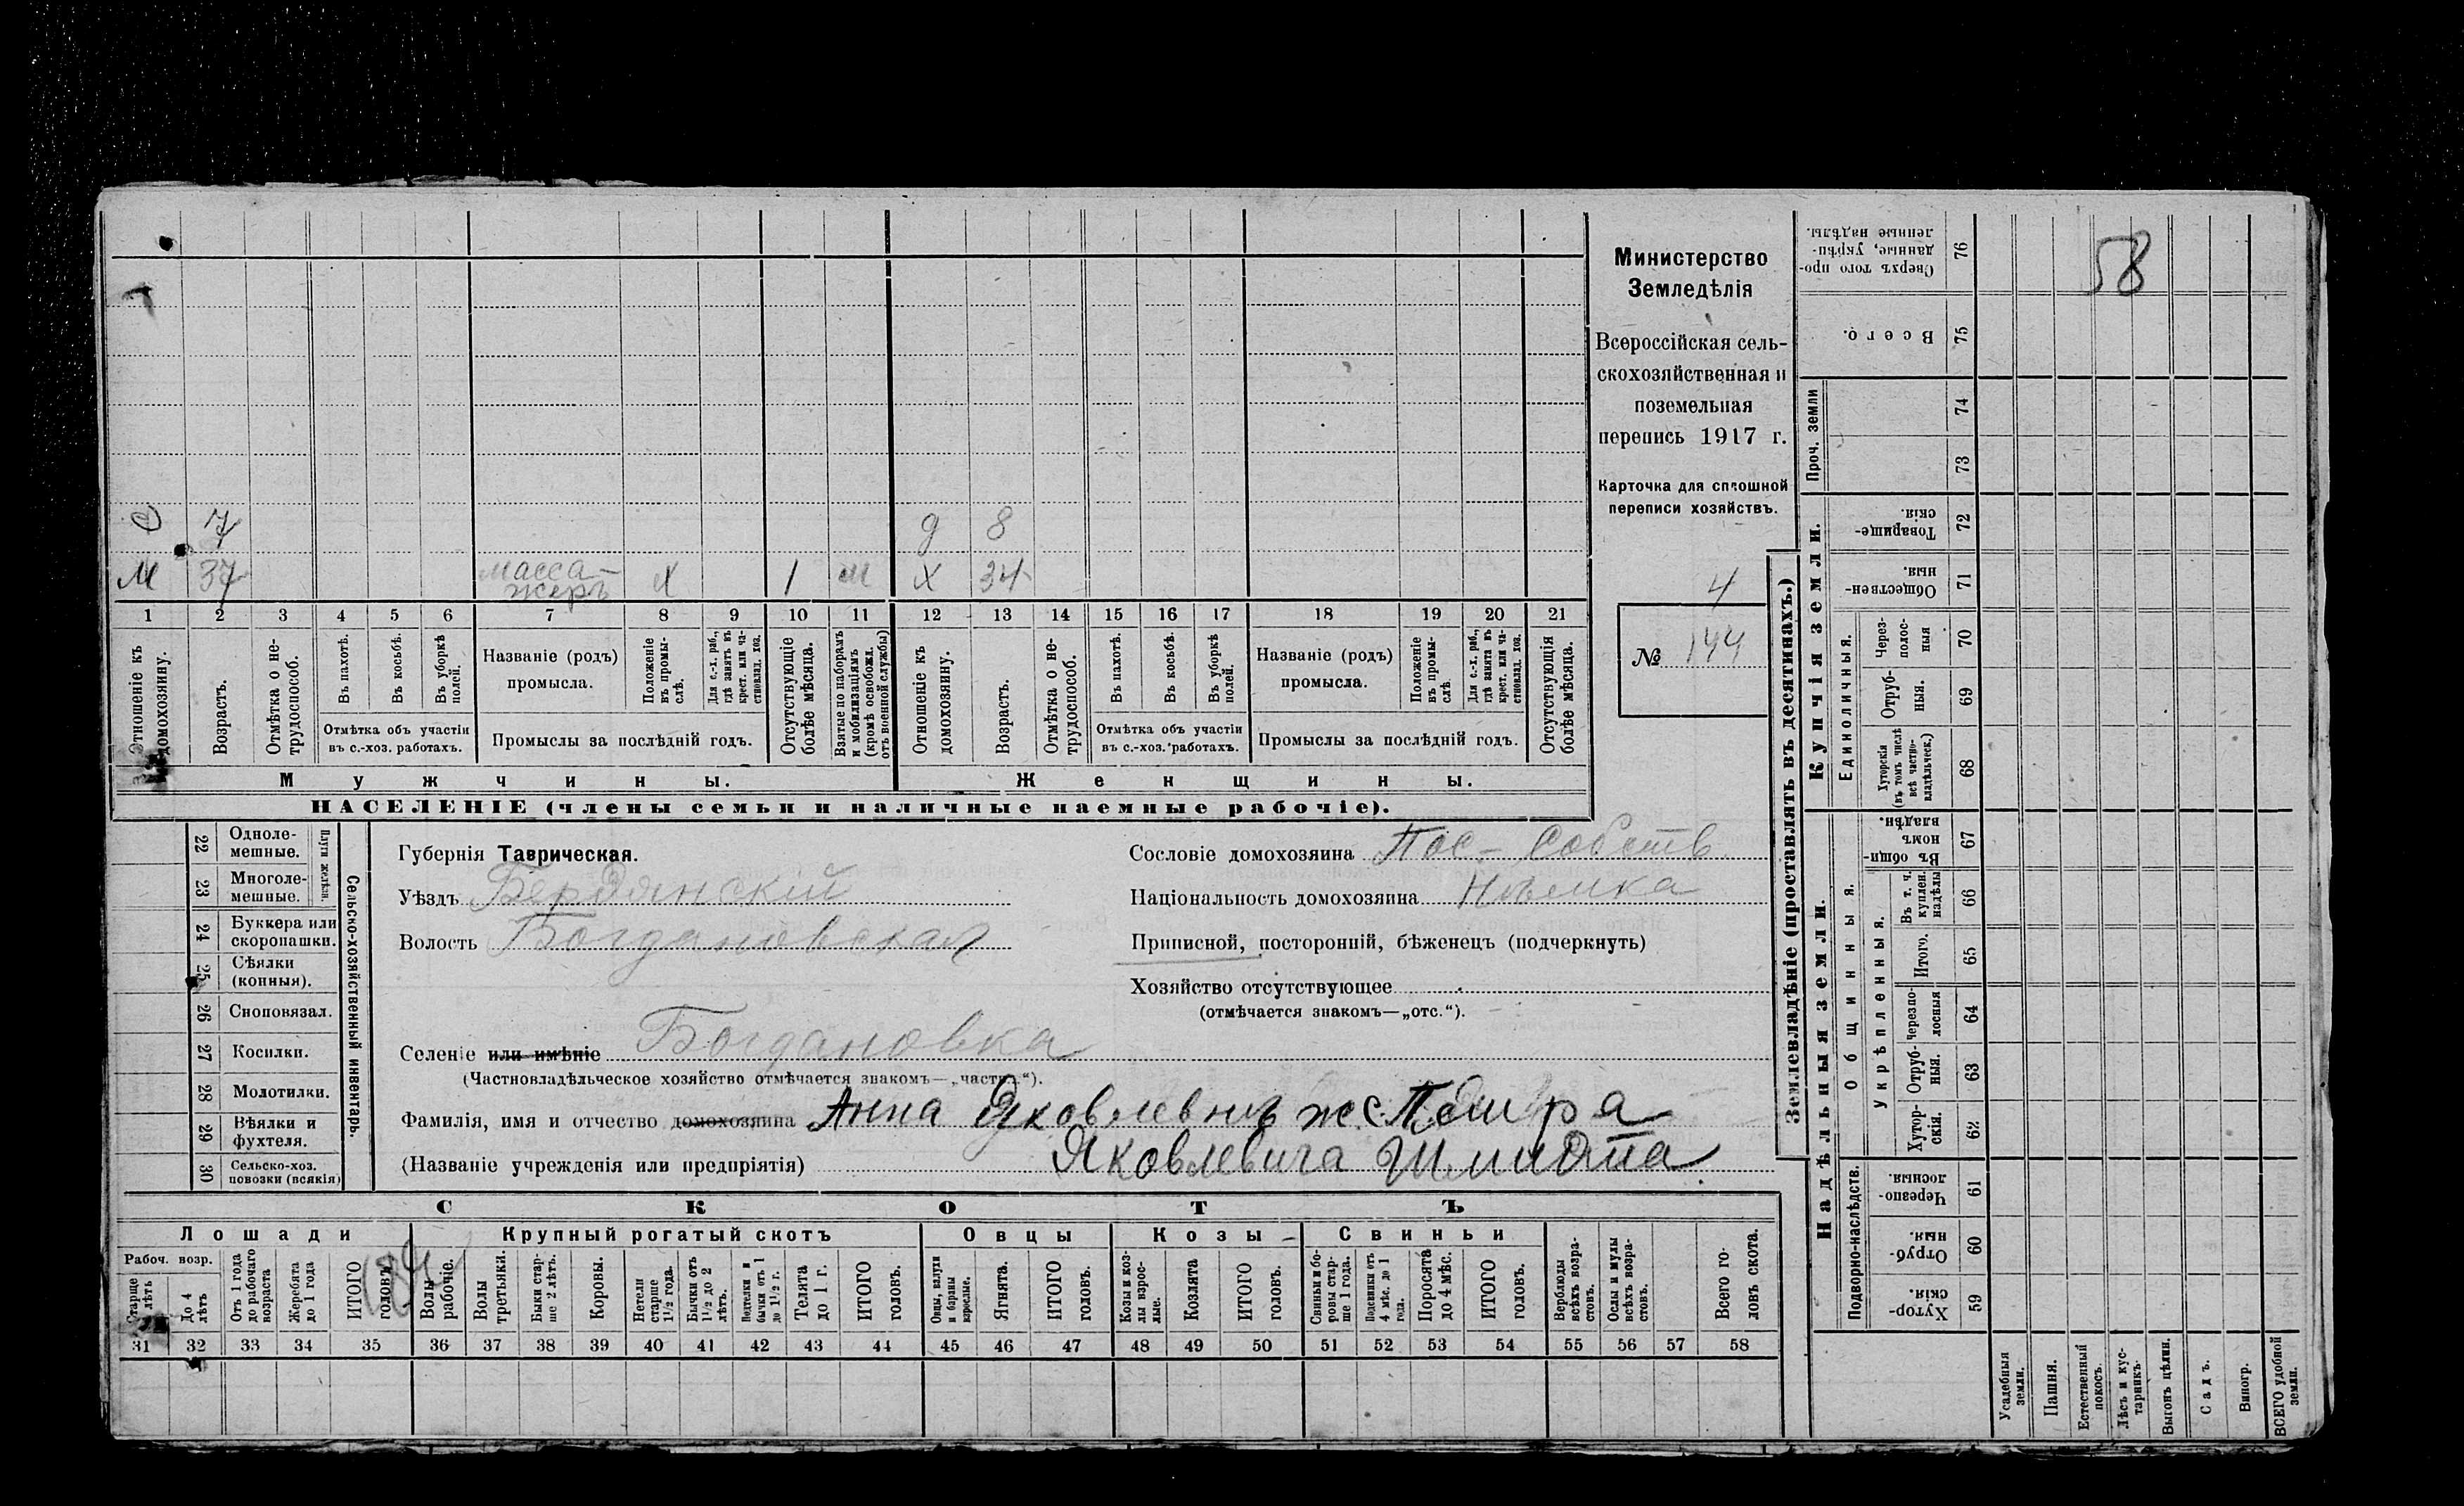 58
Министерство
Земледѣлія
Всероссійская сель-
скохозяйственная и
поземельная
перепись 1917 г.
Карточка для сплошной
переписи хозяйствъ.
4
№ 144
С 7 д 8
М 37 масса-
жеръ Х 1 м Х 34
1 2 3 4 5 6 7 8 9 10 11 12 13 14 15 16 17 18 19 20 21
Отношеніе къ
домохозяину.
Возрастъ.
Отмѣтка о не-
трудоспособ.
Въ пахотѣ.
Въ косьбѣ.
Въ уборкѣ
полей.
Отмѣтка объ участіи
въ с.-хоз. работахъ.
Названіе (родъ)
промысла.
Положеніе
въ промы-
слѣ.
Для с.-х. раб.,
гдѣ занятъ въ
крест. или ча-
стновлад. хоз.
Промыслы за послѣдній годъ.
Отсутствующіе
болѣе мѣсяца.
Взятые по наборамъ
и мобилизаціямъ
(кромѣ освобожд.
отъ военной службы)
Отношеніе къ
домохозяину.
Возрастъ.
Отмѣтка о не-
трудоспособ.
Въ пахотѣ.
Въ косьбѣ.
Въ уборкѣ
полей.
Отмѣтка объ участіи
въ с.-хоз. работахъ.
Названіе (родъ)
промысла.
Положеніе
въ промы-
слѣ.
Для с.-х. раб.,
гдѣ занята въ
крест. или ча-
стновлад. хоз.
Промыслы за послѣдній годъ.
Отсутствующія
болѣе мѣсяца.
Мужчины. Женщины.
НАСЕЛЕНІЕ (члены семьи и наличные наемные рабочіе).
22 Одноле-
мешные.
23 Многоле-
мешные.
Плуги желѣзн.
24 Буккера или
скоропашки.
25 Сѣялки
(конныя).
26 Сноповязал.
27 Косилки.
28 Молотилки.
29 Вѣялки и
фухтеля.
30 Сельско-хоз.
повозки (всякія)
Сельско-хозяйственный инвентарь.
Губернія Таврическая.
Уѣздъ Бердянскій
Волость Богдановская
Селеніе или имѣніе Богдановка
(Частновладѣльческое хозяйство отмѣчается знакомъ—„частн.“).
Фамилія, имя и отчество домохозяина Анна Яковлевна ж. Петра
(Названіе учрежденія или предпріятія) Яковлевича Шмидта
Сословіе домохозяина Пос- Собств
Національность домохозяина Нѣмка
Приписной, посторонній, бѣженецъ (подчеркнуть)
Хозяйство отсутствующее
(отмѣчается знакомъ—„отс.“).
СКОТЪ
Лошади Крупный рогатый скотъ Овцы Козы Свиньи
Рабоч. возр.
Старше
4 лѣтъ
До 4
лѣтъ
Отъ 1 года
до рабочаго
возраста
Жеребята
до 1 года
ИТОГО
головъ.
Волы
рабочіе.
Волы
третьяки.
Быки стар-
ше 2 лѣтъ.
Коровы.
Нетели
старше
1½ года.
Бычки отъ
1½ до 2
лѣтъ.
Подтелки и
бычки отъ 1
до 1½ г.
Телята
до 1 г.
ИТОГО
головъ.
Овцы, валухи
и бараны
взрослые.
Ягнята.
ИТОГО
головъ.
Козы и коз-
лы взрос-
лые.
Козлята
ИТОГО
головъ.
Свиньи и бо-
ровы стар-
ше 1 года.
Подсвинки отъ
4 мѣс. до 1
года.
Поросята
до 4 мѣс.
ИТОГО
головъ.
Верблюды
всѣхъ возра-
стовъ.
Ослы и мулы
всѣхъ возра-
стовъ.
Всего го-
ловъ скота.
31 32 33 34 35 36 37 38 39 40 41 42 43 44 45 46 47 48 49 50 51 52 53 54 55 56 57 58
Землевладѣніе (проставлять въ десятинахъ.)
Сверхъ того про-
данные, укрѣп-
ленные надѣлы. 76
Всего. 75
Проч. земли 74
73
Купчія земли.
Товарище-
скія. 72
Обществен-
ныя. 71
Единоличныя.
Через-
полос-
ныя 70
Отруб-
ныя. 69
Хуторскія
(въ томъ числѣ
всѣ частно-
владѣльческ.) 68
Надѣльныя земли.
Общинныя.
Въ общи-
номъ
владѣн. 67
Укрѣпленныя.
Въ т. ч.
куплен.
надѣлы 66
Итого. 65
Черезпо-
лосныя 64
Отруб-
ныя. 63
Хутор-
скія. 62
Подворно-наслѣдств.
Черезпо-
лосныя. 61
Отруб-
ныя. 60
Хутор-
скія. 59
Усадебныя
земли.
Пашня.
Естественный
покосъ.
Лѣсъ и кус-
тарникъ.
Выгонъ цѣлин.
Садъ.
Виногр.
ВСЕГО удобной
земли.